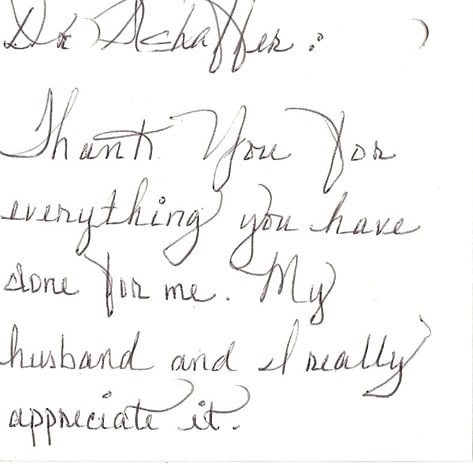 Dr Schaffer:
Thank You for
everything you have
done for me. My
husband and I really
appreciate it.